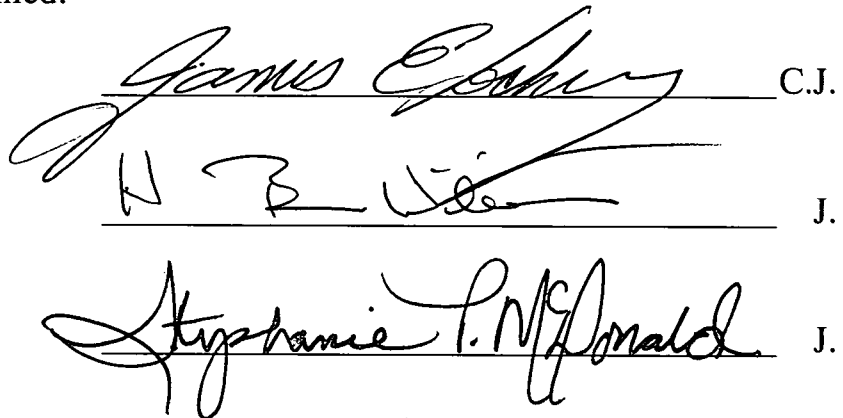 James E C.J.
H B J.
Stephanie P. McDonald J.